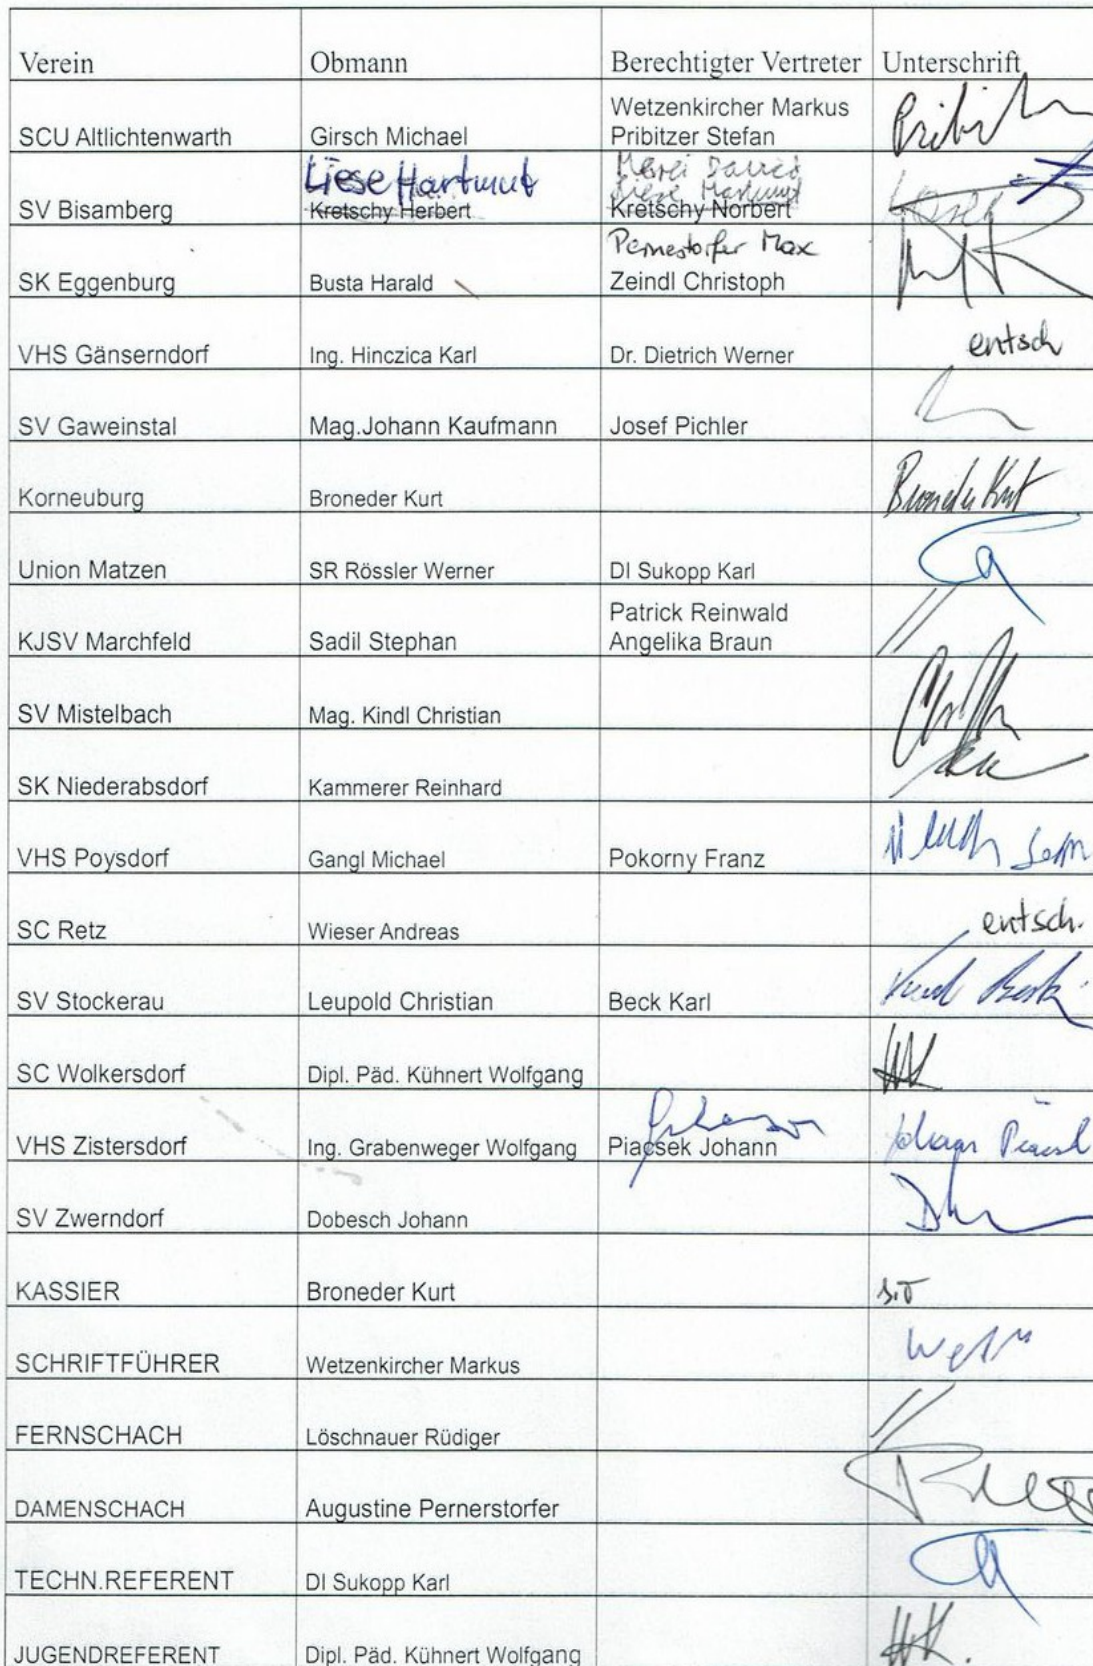 Verein Obmann Berechtigter Vertreter Unterschrift
Wetzenkircher Markus
SCU Altlichtenwarth Girsch Michael Pribitzer Stefan
Liese Hartmut
SV Bisamberg Kretschy Herbert Kretschy Norbert
Pernerstorfer Max
SK Eggenburg Busta Harald Zeindl Christoph
VHS Gänserndorf Ing. Hinczica Karl Dr. Dietrich Werner entsch
SV Gaweinstal Mag.Johann Kaufmann Josef Pichler
Korneuburg Broneder Kurt Broneder Kurt
Union Matzen SR Rössler Werner DI Sukopp Karl
Patrick Reinwald
KJSV Marchfeld Sadil Stephan Angelika Braun
SV Mistelbach Mag. Kindl Christian
SK Niederabsdorf Kammerer Reinhard
VHS Poysdorf Gangl Michael Pokorny Franz
SC Retz Wieser Andreas entsch.
SV Stockerau Leupold Christian Beck Karl Karl Beck
SC Wolkersdorf Dipl. Päd. Kühnert Wolfgang
VHS Zistersdorf Ing. Grabenweger Wolfgang Piacsek Johann
SV Zwerndorf Dobesch Johann
KASSIER Broneder Kurt
SCHRIFTFÜHRER Wetzenkircher Markus
FERNSCHACH Löschnauer Rüdiger
DAMENSCHACH Augustine Pernerstorfer
TECHN.REFERENT DI Sukopp Karl
JUGENDREFERENT Dipl. Päd. Kühnert Wolfgang